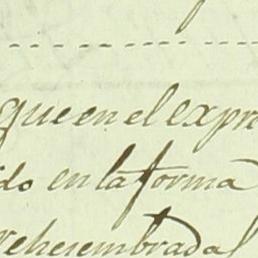 que en el expre
do en la forma
rehesembradal